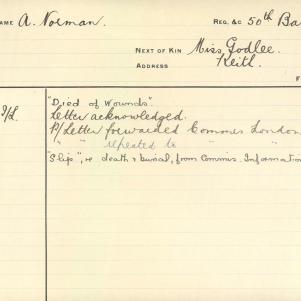 NAME A. Norman. REG. &C 50th Ba
NEXT OF KIN Miss Godlee.
ADDRESS Keith.
F
"Died of Wounds".
Letter acknowledged.
P/Letter forwarded Commrs London
" " repeated to " "
"Slip", re death & burial, from Commis. Information